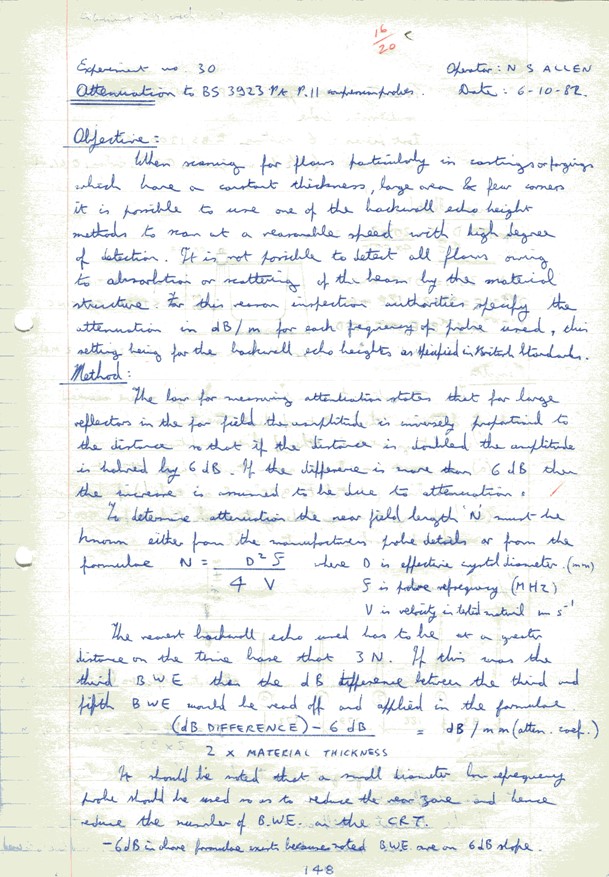 16/20
Experiment no. 30 Operator: N S ALLEN
Attenuation to BS 3923 Pt P.11 compression probes. Date: 6-10-82.
Objective:
When scanning for flaws particularly in castings or forgings
which have a constant thickness, large area & few corners
it is possible to use one of the backwall echo height
methods to scan at a reasonable speed with high degree
of detection. It is not possible to detect all flaws owing
to absorbtion or scattering of the beam by the material
structure. For this reason inspection authorities specify the
attenuation in dB/m for each frequency of probe used, this
setting being for the backwall echo heights as specified in British Standards.
Method:
The law for measuring attenuation states that for large
reflectors in the far field the amplitude is inversely proportional to
the distance so that if the distance is doubled the amplitude
is halved by 6 dB. If the difference is more than 6 dB then
the increase is assumed to be due to attenuation.
To determine attenuation the near field length 'N' must be
known either from the manufacturers probe details or from the
formulae N = D² f / 4 V where D is effective crystal diameter. (mm)
f is probe frequency (MHz)
V is velocity in tested material m s⁻¹
The nearest backwall echo used has to be at a greater
distance on the time base that 3 N. If this was the
third B.W.E then the dB difference between the third and
fifth B.W.E would be read off and applied in the formulae
(dB. DIFFERENCE) - 6 dB = dB / mm (atten. coef.)
2 x MATERIAL THICKNESS
It should be noted that a small diameter low frequency
probe should be used so as to reduce the near zone and hence
reduce the number of B.W.E. on the CRT.
-6dB in above formulae exists because noted B.W.E. are on 6dB slope.
148